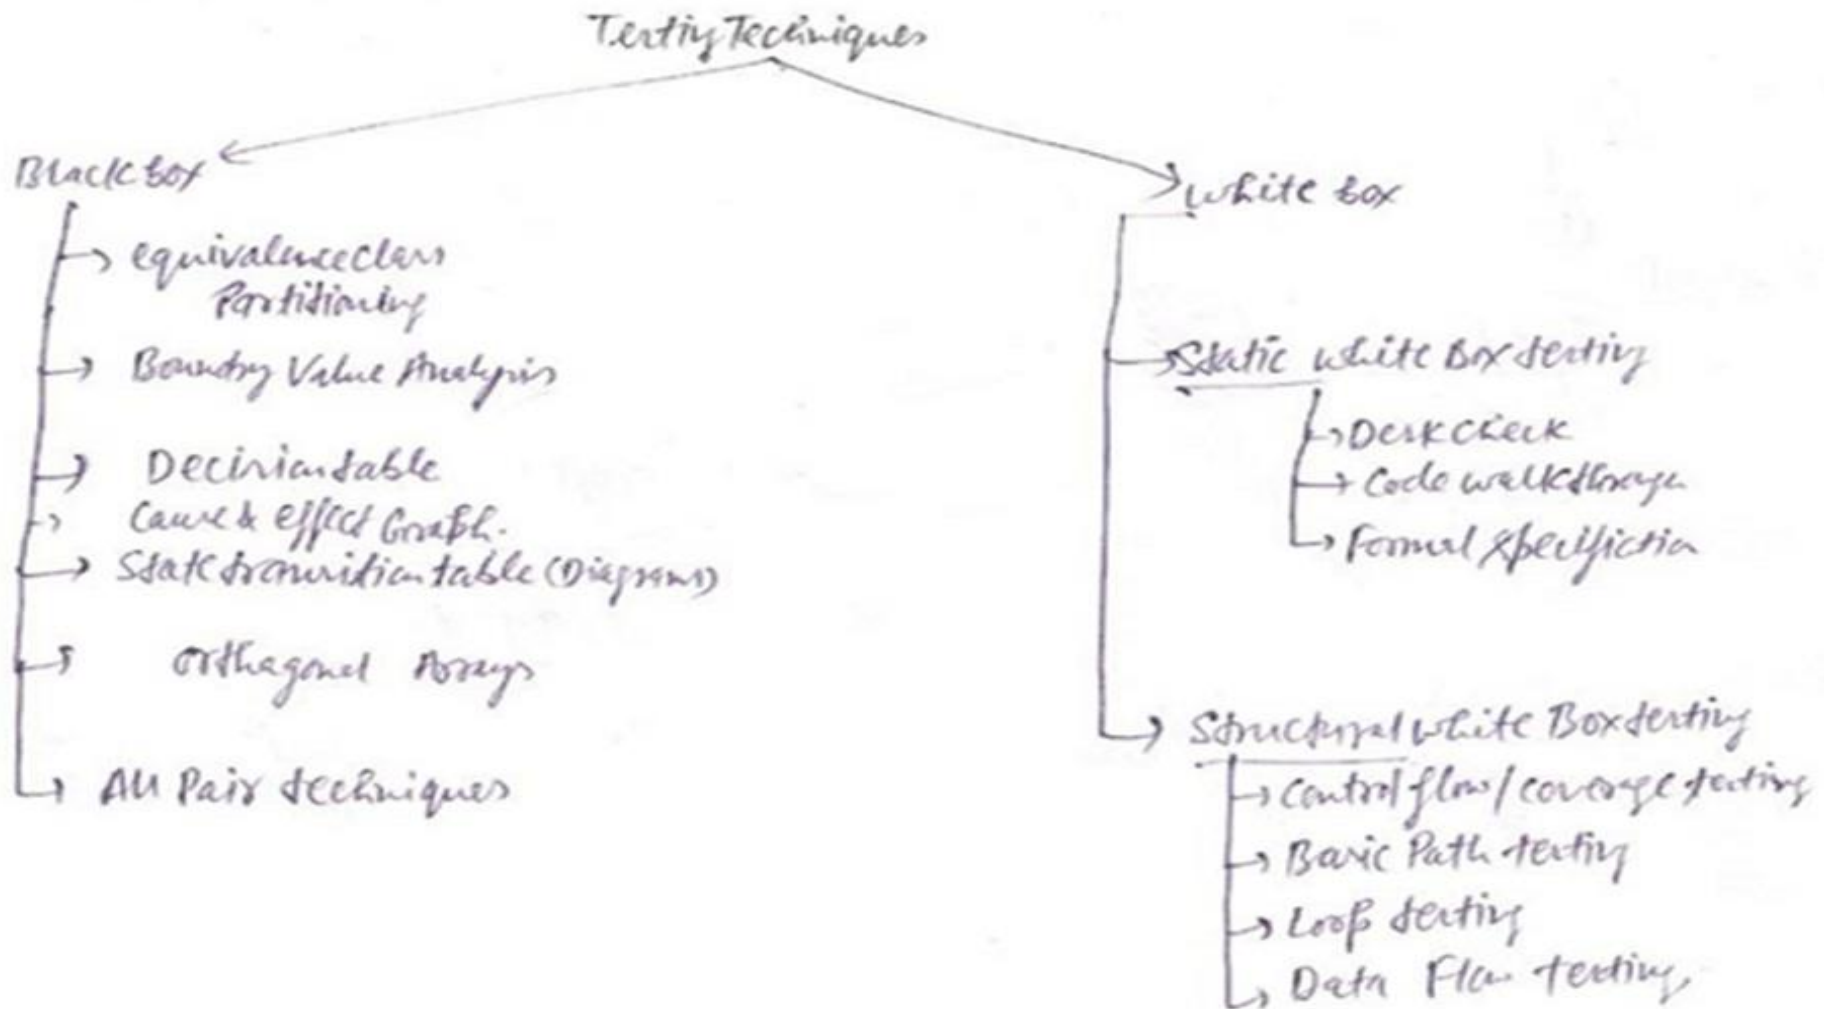 Testing Techniques
Black box
equivalence class
Partitioning
Boundry Value Analysis
Decision table
Cause & effect Graph.
State transition table (Diagrams)
orthagonal Arrays
All Pair techniques
White box
Static white Box testing
Desk check
Code walkthrough
Formal
Structural white Box testing
Control flow / coverage testing
Basic Path testing
Loop testing
Data Flow testing